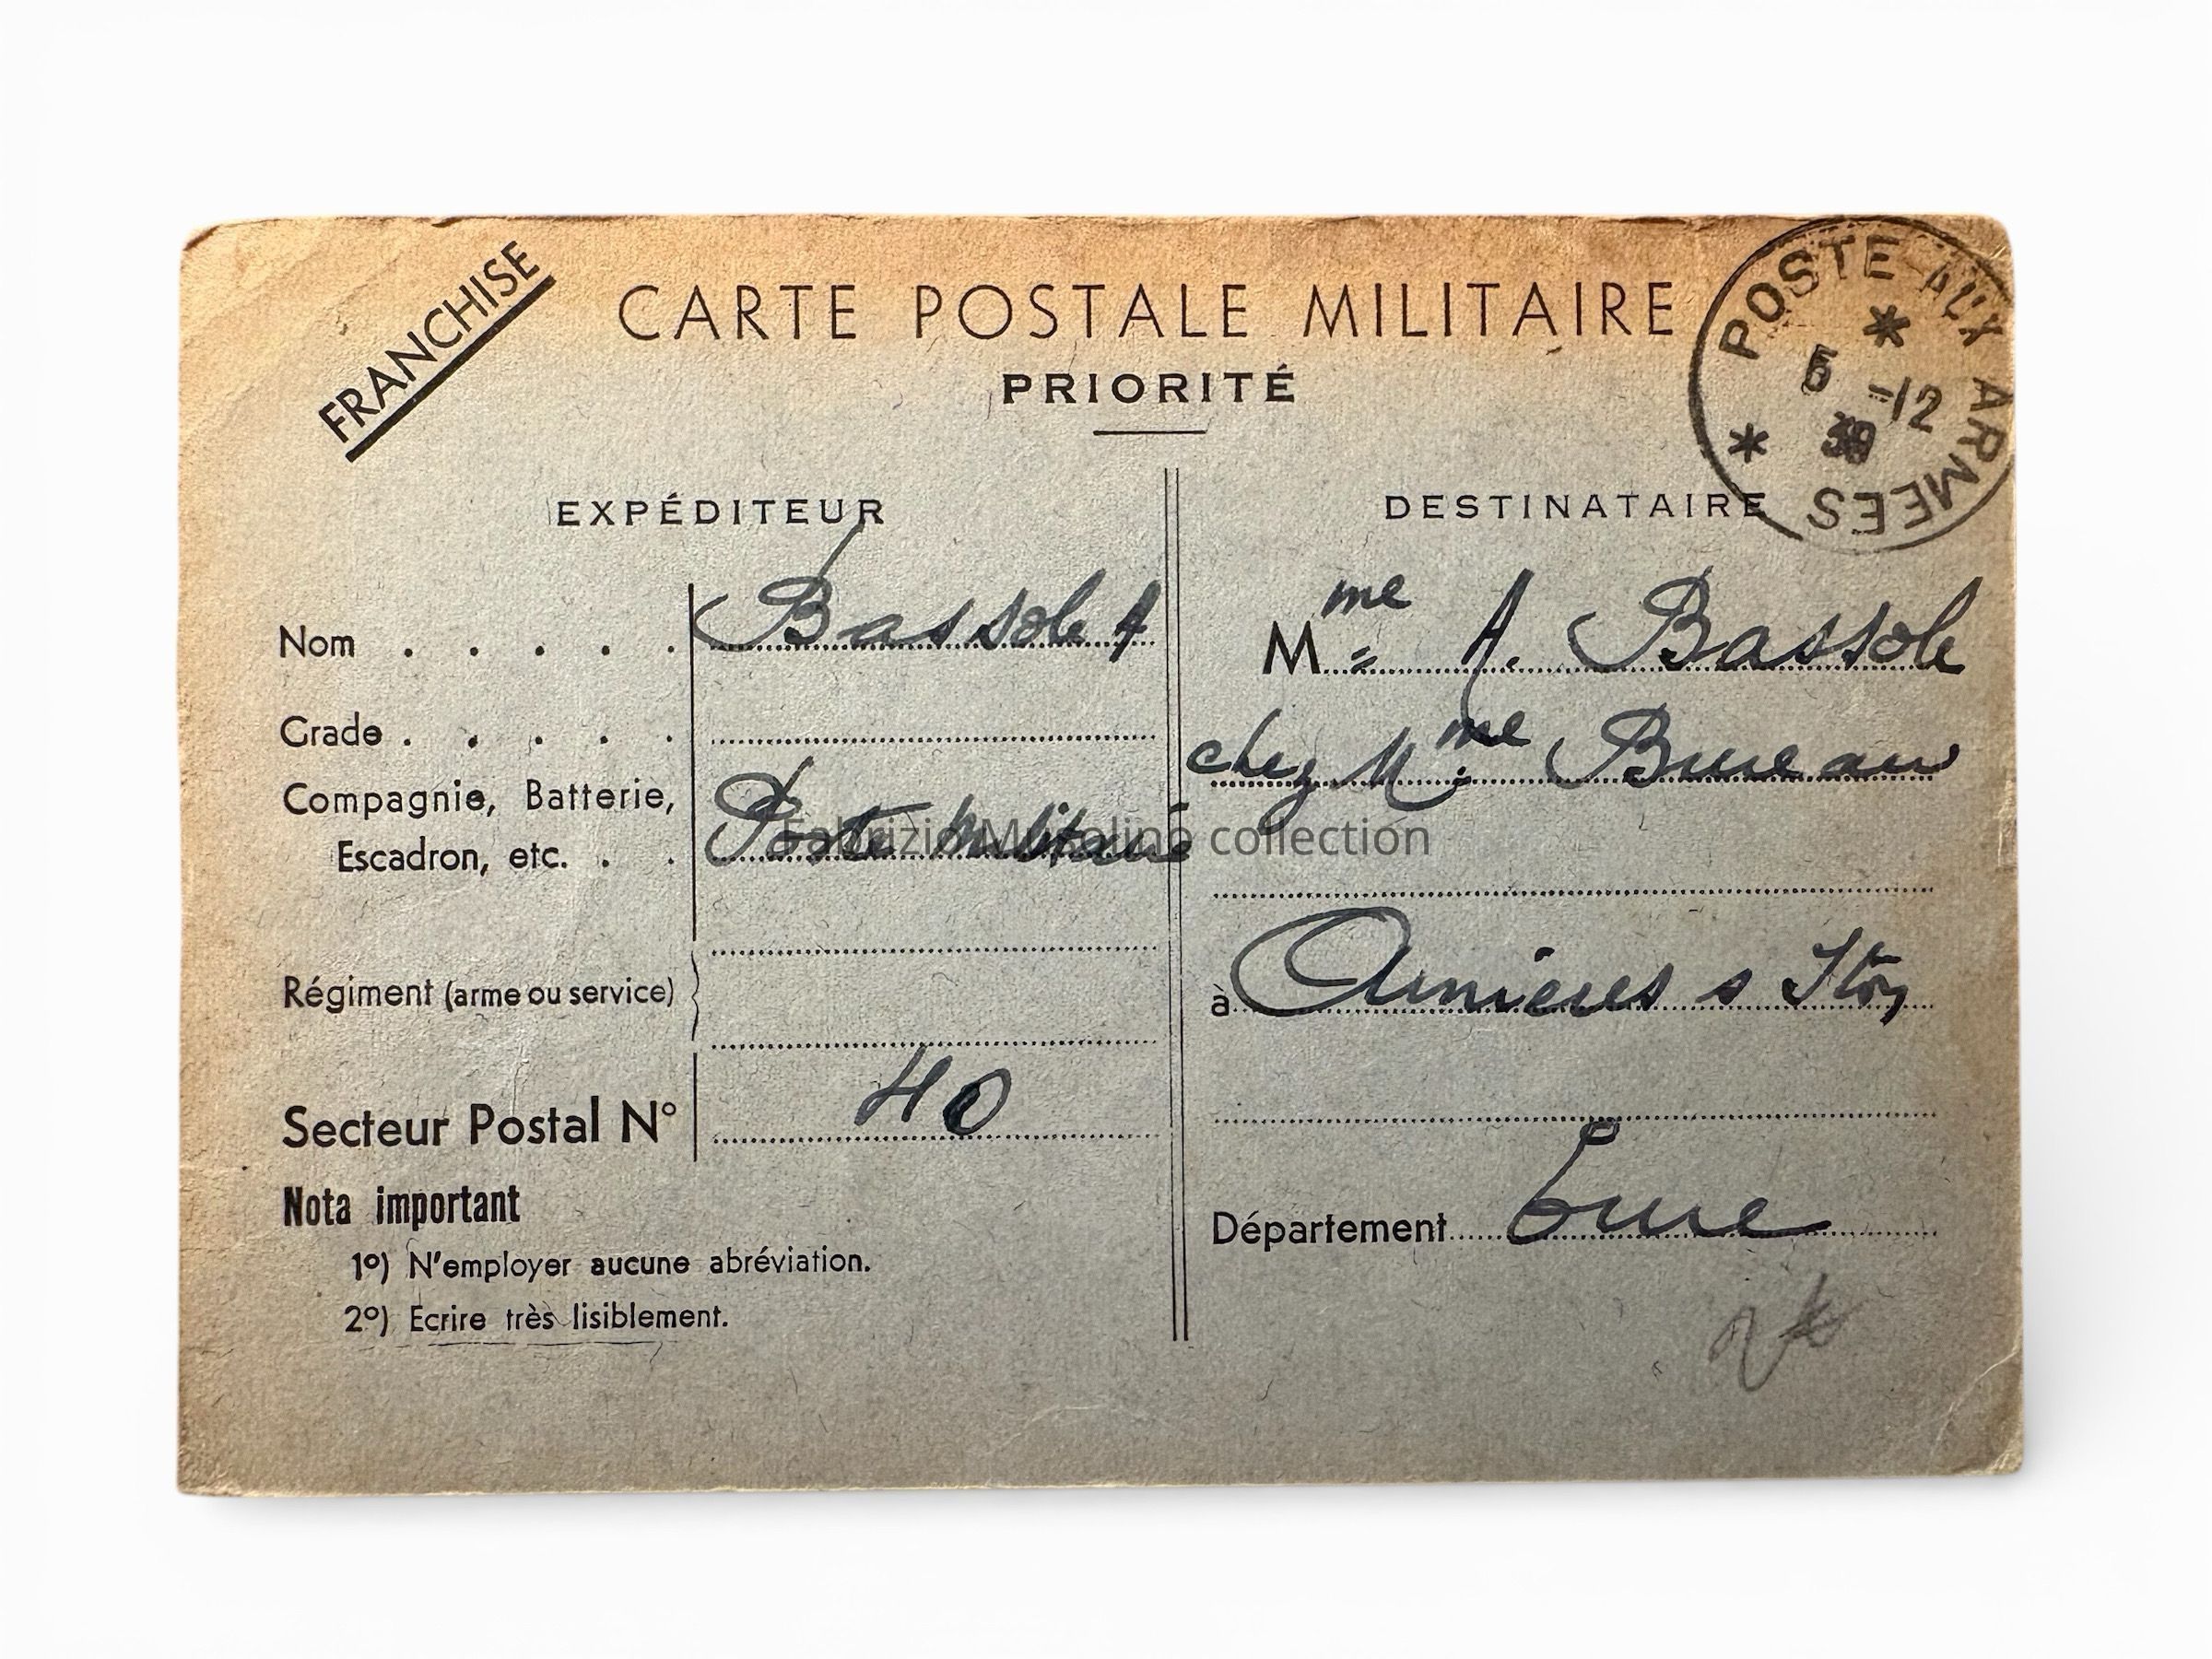 FRANCHISE
CARTE POSTALE MILITAIRE
PRIORITÉ
POSTE AUX ARMEES
5 -12
39
EXPÉDITEUR
Nom . . . . . Bassole A
Grade . . . . .
Compagnie, Batterie,
Escadron, etc. . . Poste Militaire
Régiment (arme ou service)
Secteur Postal N° 40
Nota important
1º) N'employer aucune abréviation.
2º) Ecrire très lisiblement.
DESTINATAIRE
Mme A. Bassole
chez Mme Bureau
à Arnières s Iton
Département Eure
Fabrizio Musolino collection